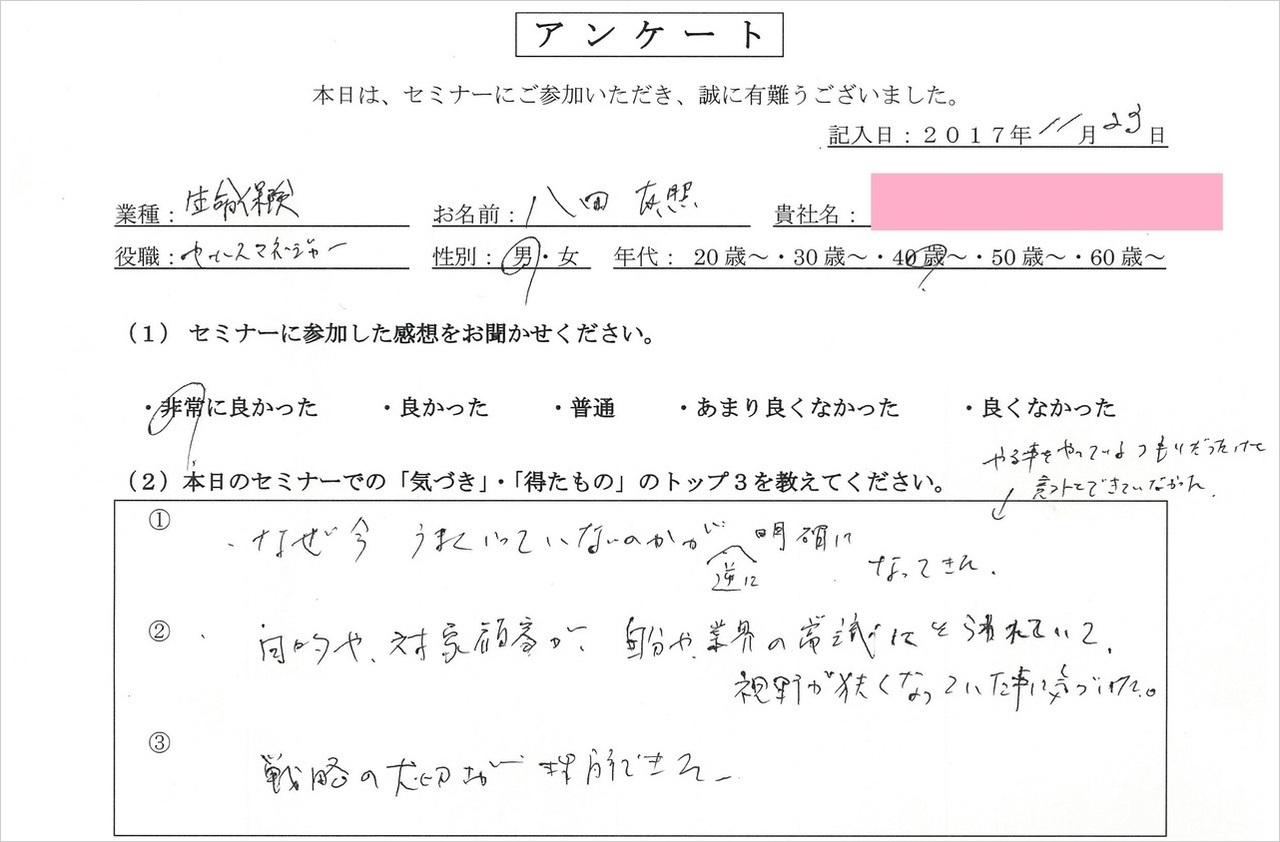 アンケート
本日は、セミナーにご参加いただき、誠に有難うございました。
記入日：２０１７年 11月 23日
業種：生命保険 お名前：八田 哀照 貴社名：
役職：セールスマネージャー 性別：男・女 年代： 20歳～・30歳～・40歳～・50歳～・60歳～
（１） セミナーに参加した感想をお聞かせください。
・非常に良かった ・良かった ・普通 ・あまり良くなかった ・良くなかった
やる事をやっているつもりだったけど
意外とできていなかった。
（２）本日のセミナーでの「気づき」・「得たもの」のトップ３を教えてください。
① ・なぜ今 うまくいっていないのかが 逆に 明確に
なってきた。
② ・目的や、対象顧客が、自分や業界の常識にとらわれていて、
視野が狭くなっていた事に気づけた。
③ 戦略の大切さが理解できた